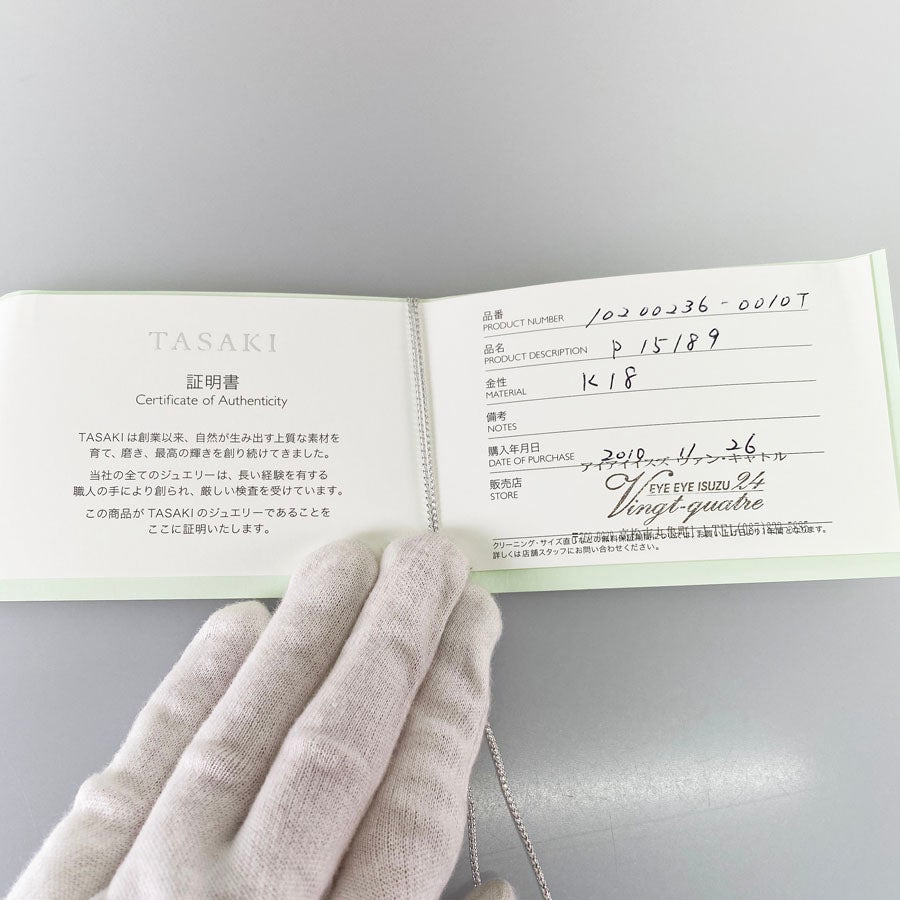 TASAKI
証明書
Certificate of Authenticity
TASAKIは創業以来、自然が生み出す上質な素材を
育て、磨き、最高の輝きを創り続けてきました。
当社の全てのジュエリーは、長い経験を有する
職人の手により創られ、厳しい検査を受けています。
この商品が TASAKIのジュエリーであることを
ここに証明いたします。
品番
PRODUCT NUMBER 10200236-0010T
品名
PRODUCT DESCRIPTION P 15189
金性
MATERIAL K18
備考
NOTES
購入年月日
DATE OF PURCHASE 2010 11 26
アイアイイスズ ヴァン・キャトル
販売店
STORE
EYE EYE ISUZU 24
Vingt-quatre
クリーニング・サイズ直しなどの無料保証期間については、お買い上げ日より1年間となります。
詳しくは店舗スタッフにお問い合わせください。